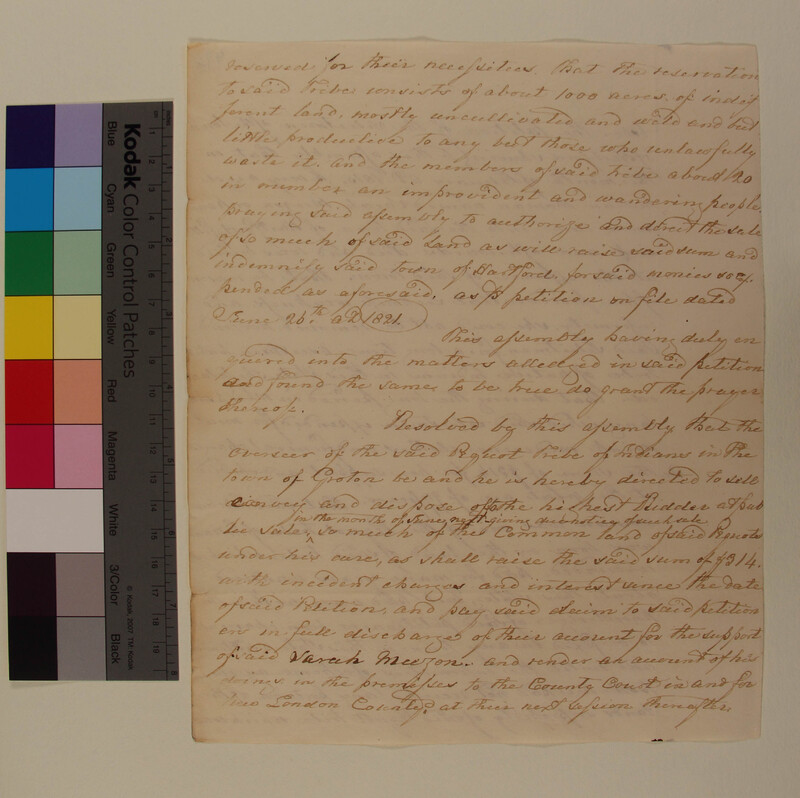 reserved for their necessities that the reservation
to said Tribe consists of about 1000 acres, of indif
ferent land, mostly uncultivated and wild and but
little productive to any but those who unlawfully
waste it. and the members of said tribe about 20
in number an improvident and wandering people.
Praying said assembly to authorize and direct the sale
of so much of said Land as will raise said sum and
indemnify said town of Hartford, for said monies so ex
pended as aforesaid. as pr petition on file dated
June 26th AD 1821.
This assembly having duly en
quired into the matters alledged in said petition
and found the same to be true do grant the prayer
thereof.
Resolved by this assembly that the
overseer of the said Pequot Tribe of Indians in the
town of Groton be and he is hereby directed to sell
convey and dispose of to the highest Bidder at pub
in the month of June next giving due notice of such sale
lic sale, ^ so much of the Common land of said Pequots
under his care, as shall raise the said sum of $314.
with incident charges and interest since the date
of said Petition, and pay said claim to said petition
ers in full discharge of their account for the support
of said Sarah Meazon. and render an account of his
doings in the premises to the County Court in and for
New London County, at their next session thereafter.
Kodak Color Control Patches
Blue
Cyan
Green
Yellow
Red
Magenta
White
3/Color
Black
© Kodak, 2007 TM: Kodak